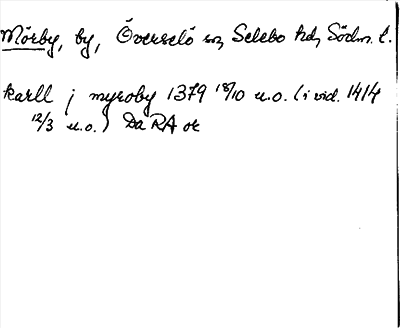 Mörby, by, Överselö sn, Selebo hd, Södm. l.
karll j myroby 1379 18/10 u.o. (i vid. 1414
12/3 u.o.) Da RA or